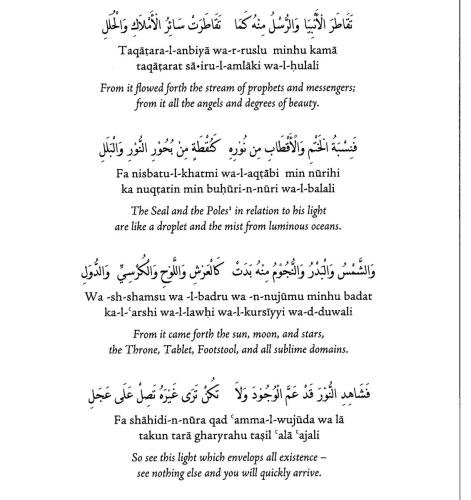 تَقَاطَرَ الْأَنْبِيَا وَالرُّسْلُ مِنْهُ كَمَا تَقَاطَرَتْ سَائِرُ الْأَمْلَاكِ وَالْحُلَلِ
Taqāṭara-l-anbiyā wa-r-ruslu minhu kamā
taqāṭarat sā•iru-l-amlāki wa-l-ḥulali
From it flowed forth the stream of prophets and messengers;
from it all the angels and degrees of beauty.
فَنِسْبَةُ الْخَتْمِ وَالْأَقْطَابِ مِن نُورِهِ كَنُقْطَةٍ مِنْ بُحُورِ النُّورِ وَالْبَلَلِ
Fa nisbatu-l-khatmi wa-l-aqtābi min nūrihi
ka nuqtatin min buḥūri-n-nūri wa-l-balali
The Seal and the Poles¹ in relation to his light
are like a droplet and the mist from luminous oceans.
وَالشَّمْسُ وَالْبَدْرُ وَالنُّجُومُ مِنْهُ بَدَتْ كَالْعَرْشِ وَاللَّوْحِ وَالْكُرْسِيِّ وَالدُّوَلِ
Wa -sh-shamsu wa -l-badru wa -n-nujūmu minhu badat
ka-l-ʿarshi wa-l-lawḥi wa-l-kursiyyi wa-d-duwali
From it came forth the sun, moon, and stars,
the Throne, Tablet, Footstool, and all sublime domains.
فَشَاهِدِ النُّورَ قَدْ عَمَّ الْوُجُودَ وَلَا تَكُنْ تَرَى غَيْرَهُ تَصِلْ عَلَى عَجَلِ
Fa shāhidi-n-nūra qad ʿamma-l-wujūda wa lā
takun tarā gharyrahu taṣil ʿalā ʿajali
So see this light which envelops all existence –
see nothing else and you will quickly arrive.